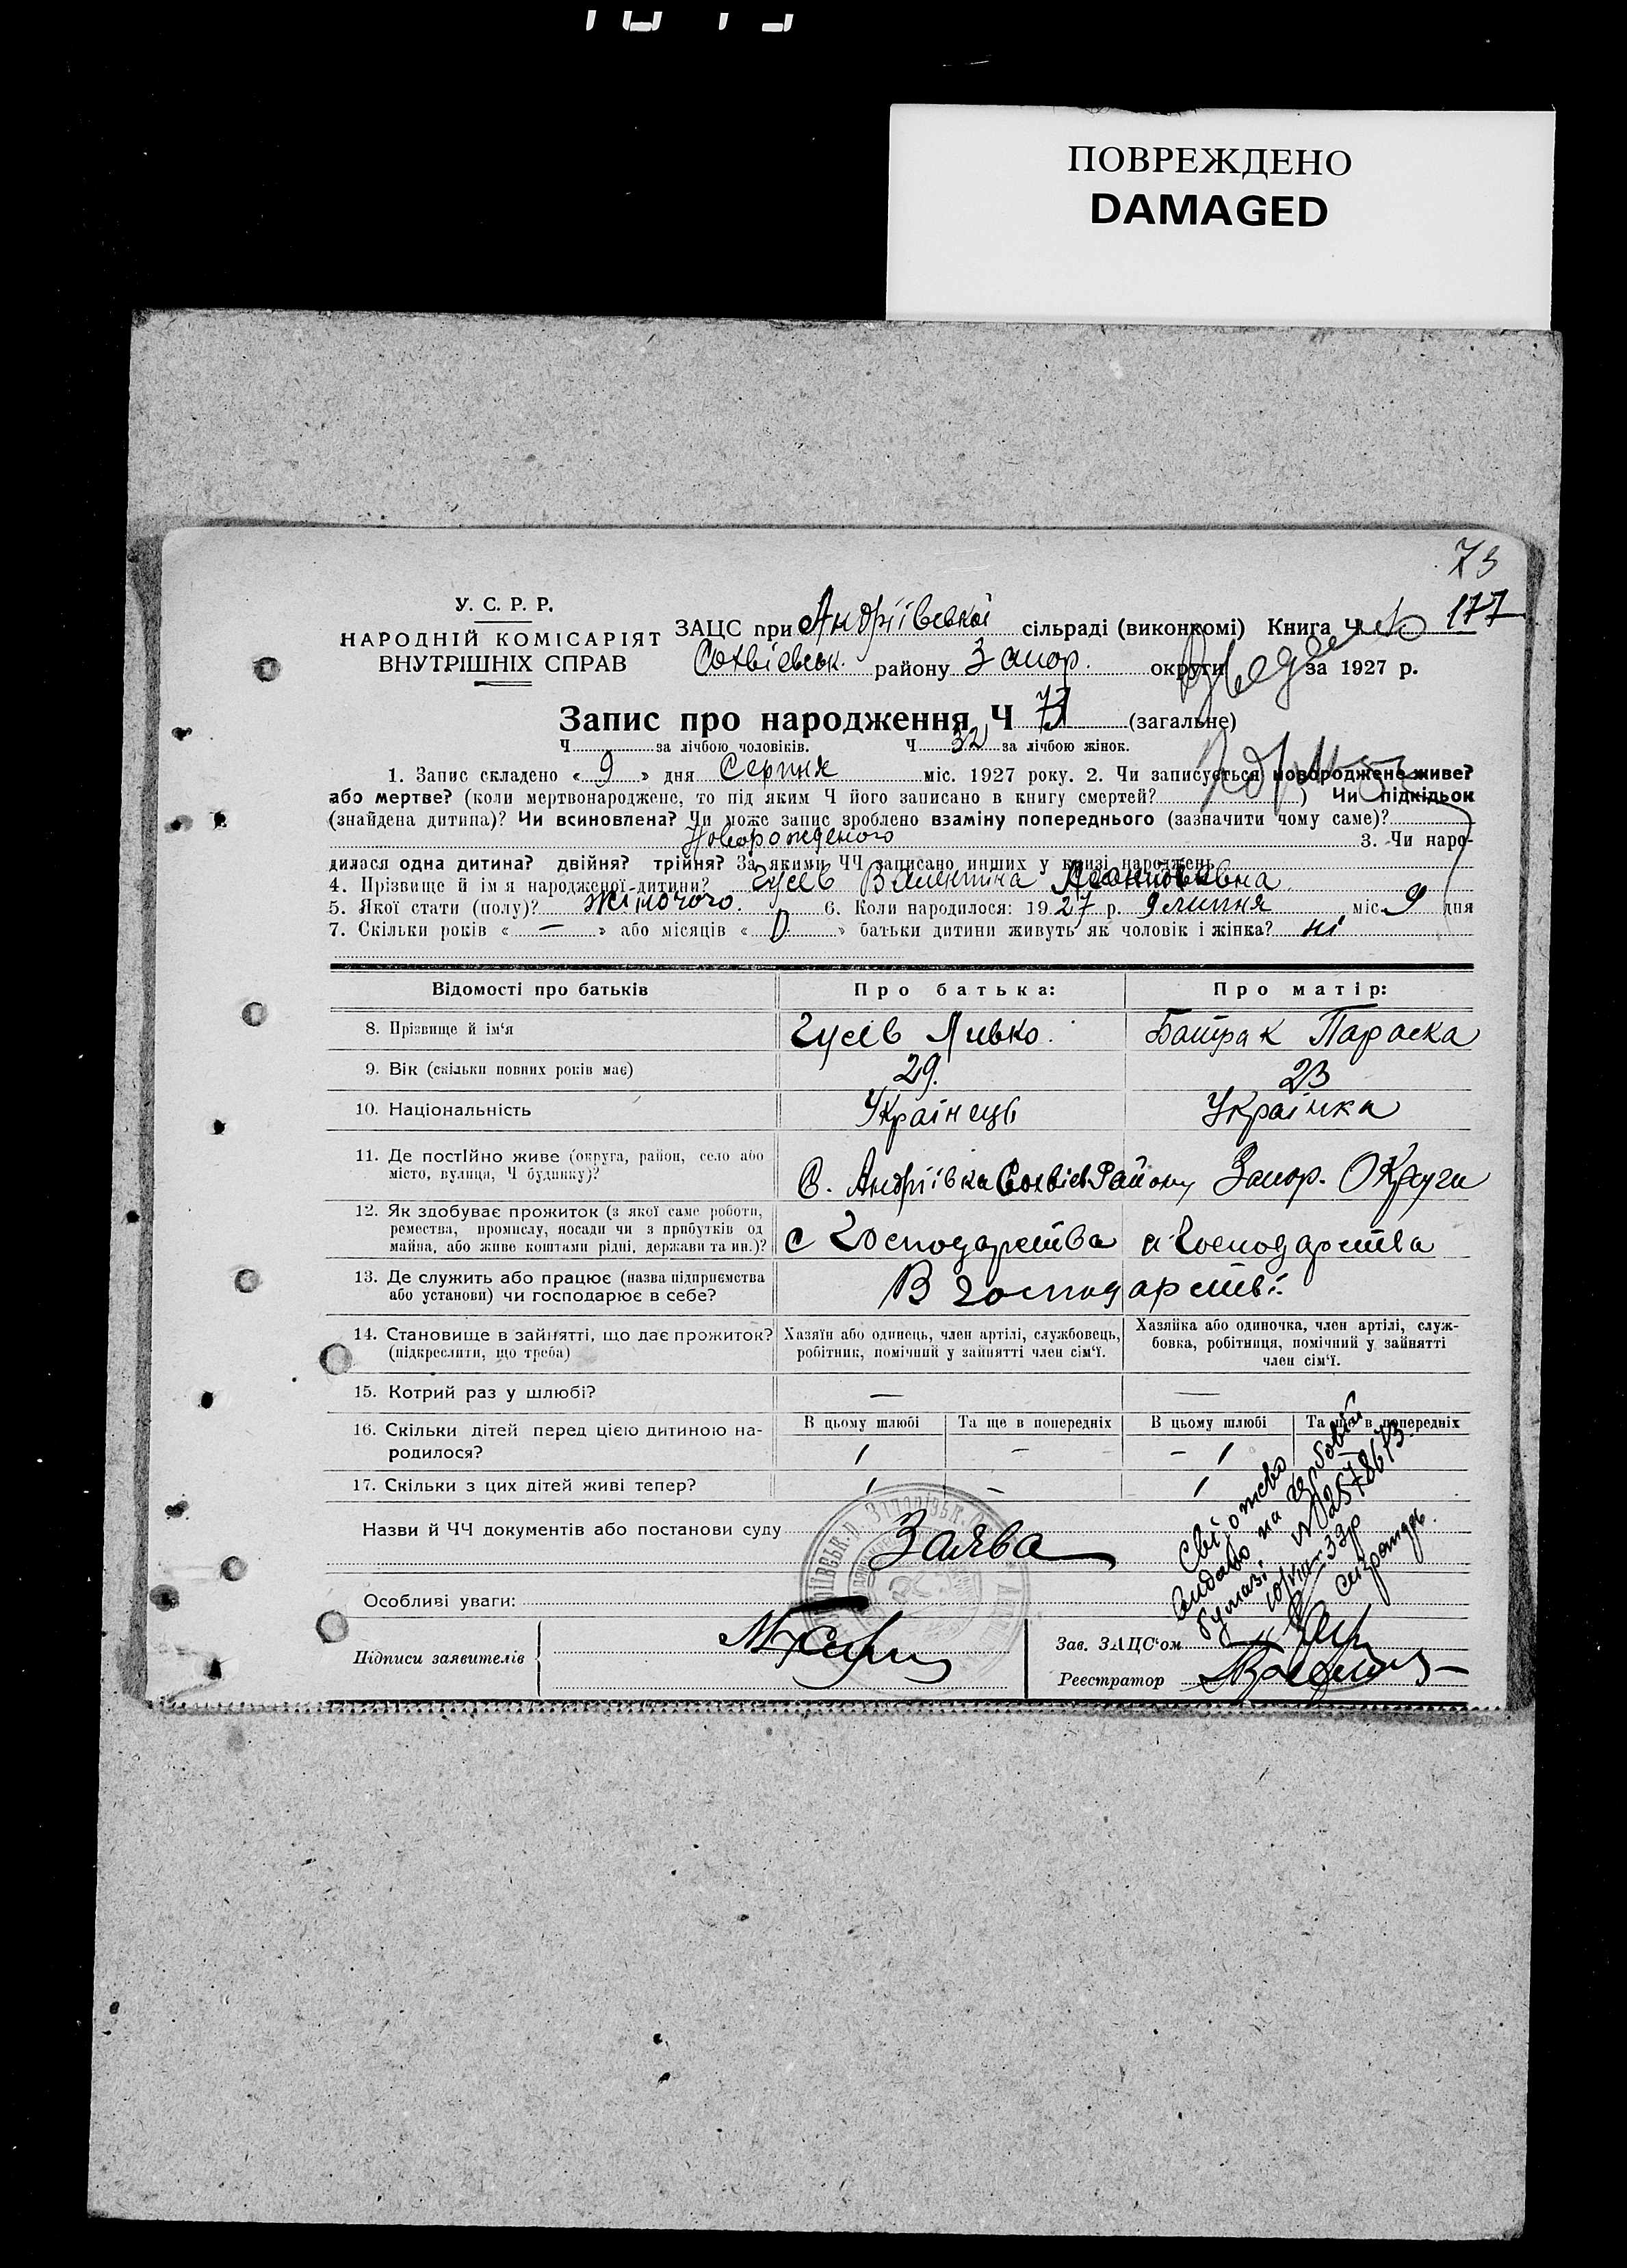 ПОВРЕЖДЕНО
DAMAGED
73
У. С. Р. Р.
НАРОДНІЙ КОМІСАРІЯТ
ВНУТРІШНІХ СПРАВ
ЗАЦС при Андріївській сільраді (виконкомі) Книга Ч 177
Софіївськ. району Запор. округи за 1927 р.
Запис про народження Ч 71 (загальне)
Ч за лічбою чоловіків. Ч 32 за лічбою жінок.
1. Запис складено « 9 » дня Серпня міс. 1927 року. 2. Чи записується новороджене живе?
або мертве? (коли мертвонароджене, то під яким Ч його записано в книгу смертей? ) Чи підкідьок
(знайдена дитина)? Чи всиновлена? Чи може запис зроблено взаміну попереднього (зазначити чому саме)?
Новорожденого 3. Чи наро-
дилася одна дитина? двійня? трійня? За якими ЧЧ записано инших у книзі народжень
4. Прізвище й ім'я народженої дитини? Гусєв Валентина
5. Якої стати (полу)? Жіночого. 6. Коли народилося: 1927 р. 9 липня міс. 9 дня
7. Скільки років « — » або місяців « » батьки дитини живуть як чоловік і жінка? ні
Відомості про батьків Про батька: Про матір:
8. Прізвище й ім'я Гусєв Ливко. Батрак Параска
9. Вік (скільки повних років має) 29. 23
10. Національність Українець Українка
11. Де постійно живе (округа, район, село або
місто, вулиця, Ч будинку)?
С. Андріївка Софієв Району Запор. Округи
12. Як здобуває прожиток (з якої саме роботи,
ремества, промислу, посади чи з прибутків од
майна, або живе коштами рідні, держави та ин.)?
с Господарства с Господарства
13. Де служить або працює (назва підприємства
або установи) чи господарює в себе?
В господарстві.
14. Становище в зайнятті, що дає прожиток?
(підкреслити, що треба)
Хазяїн або одинець, член артілі, службовець,
робітник, помічний у зайнятті член сім'ї.
Хазяйка або одиночка, член артілі, служ-
бовка, робітниця, помічний у зайнятті
член сім'ї.
15. Котрий раз у шлюбі? — —
В цьому шлюбі Та ще в попередніх В цьому шлюбі Та ще в попередніх
16. Скільки дітей перед цією дитиною на-
родилося?
1 — - 1
17. Скільки з цих дітей живі тепер? 1 — 1
Назви й ЧЧ документів або постанови суду Заява
Особливі уваги:
Свідоцтво
видано на гербовій
бумазі № 2578673
10/VIII-33р
Підписи заявителів
Зав. ЗАЦС'ом
Реестратор